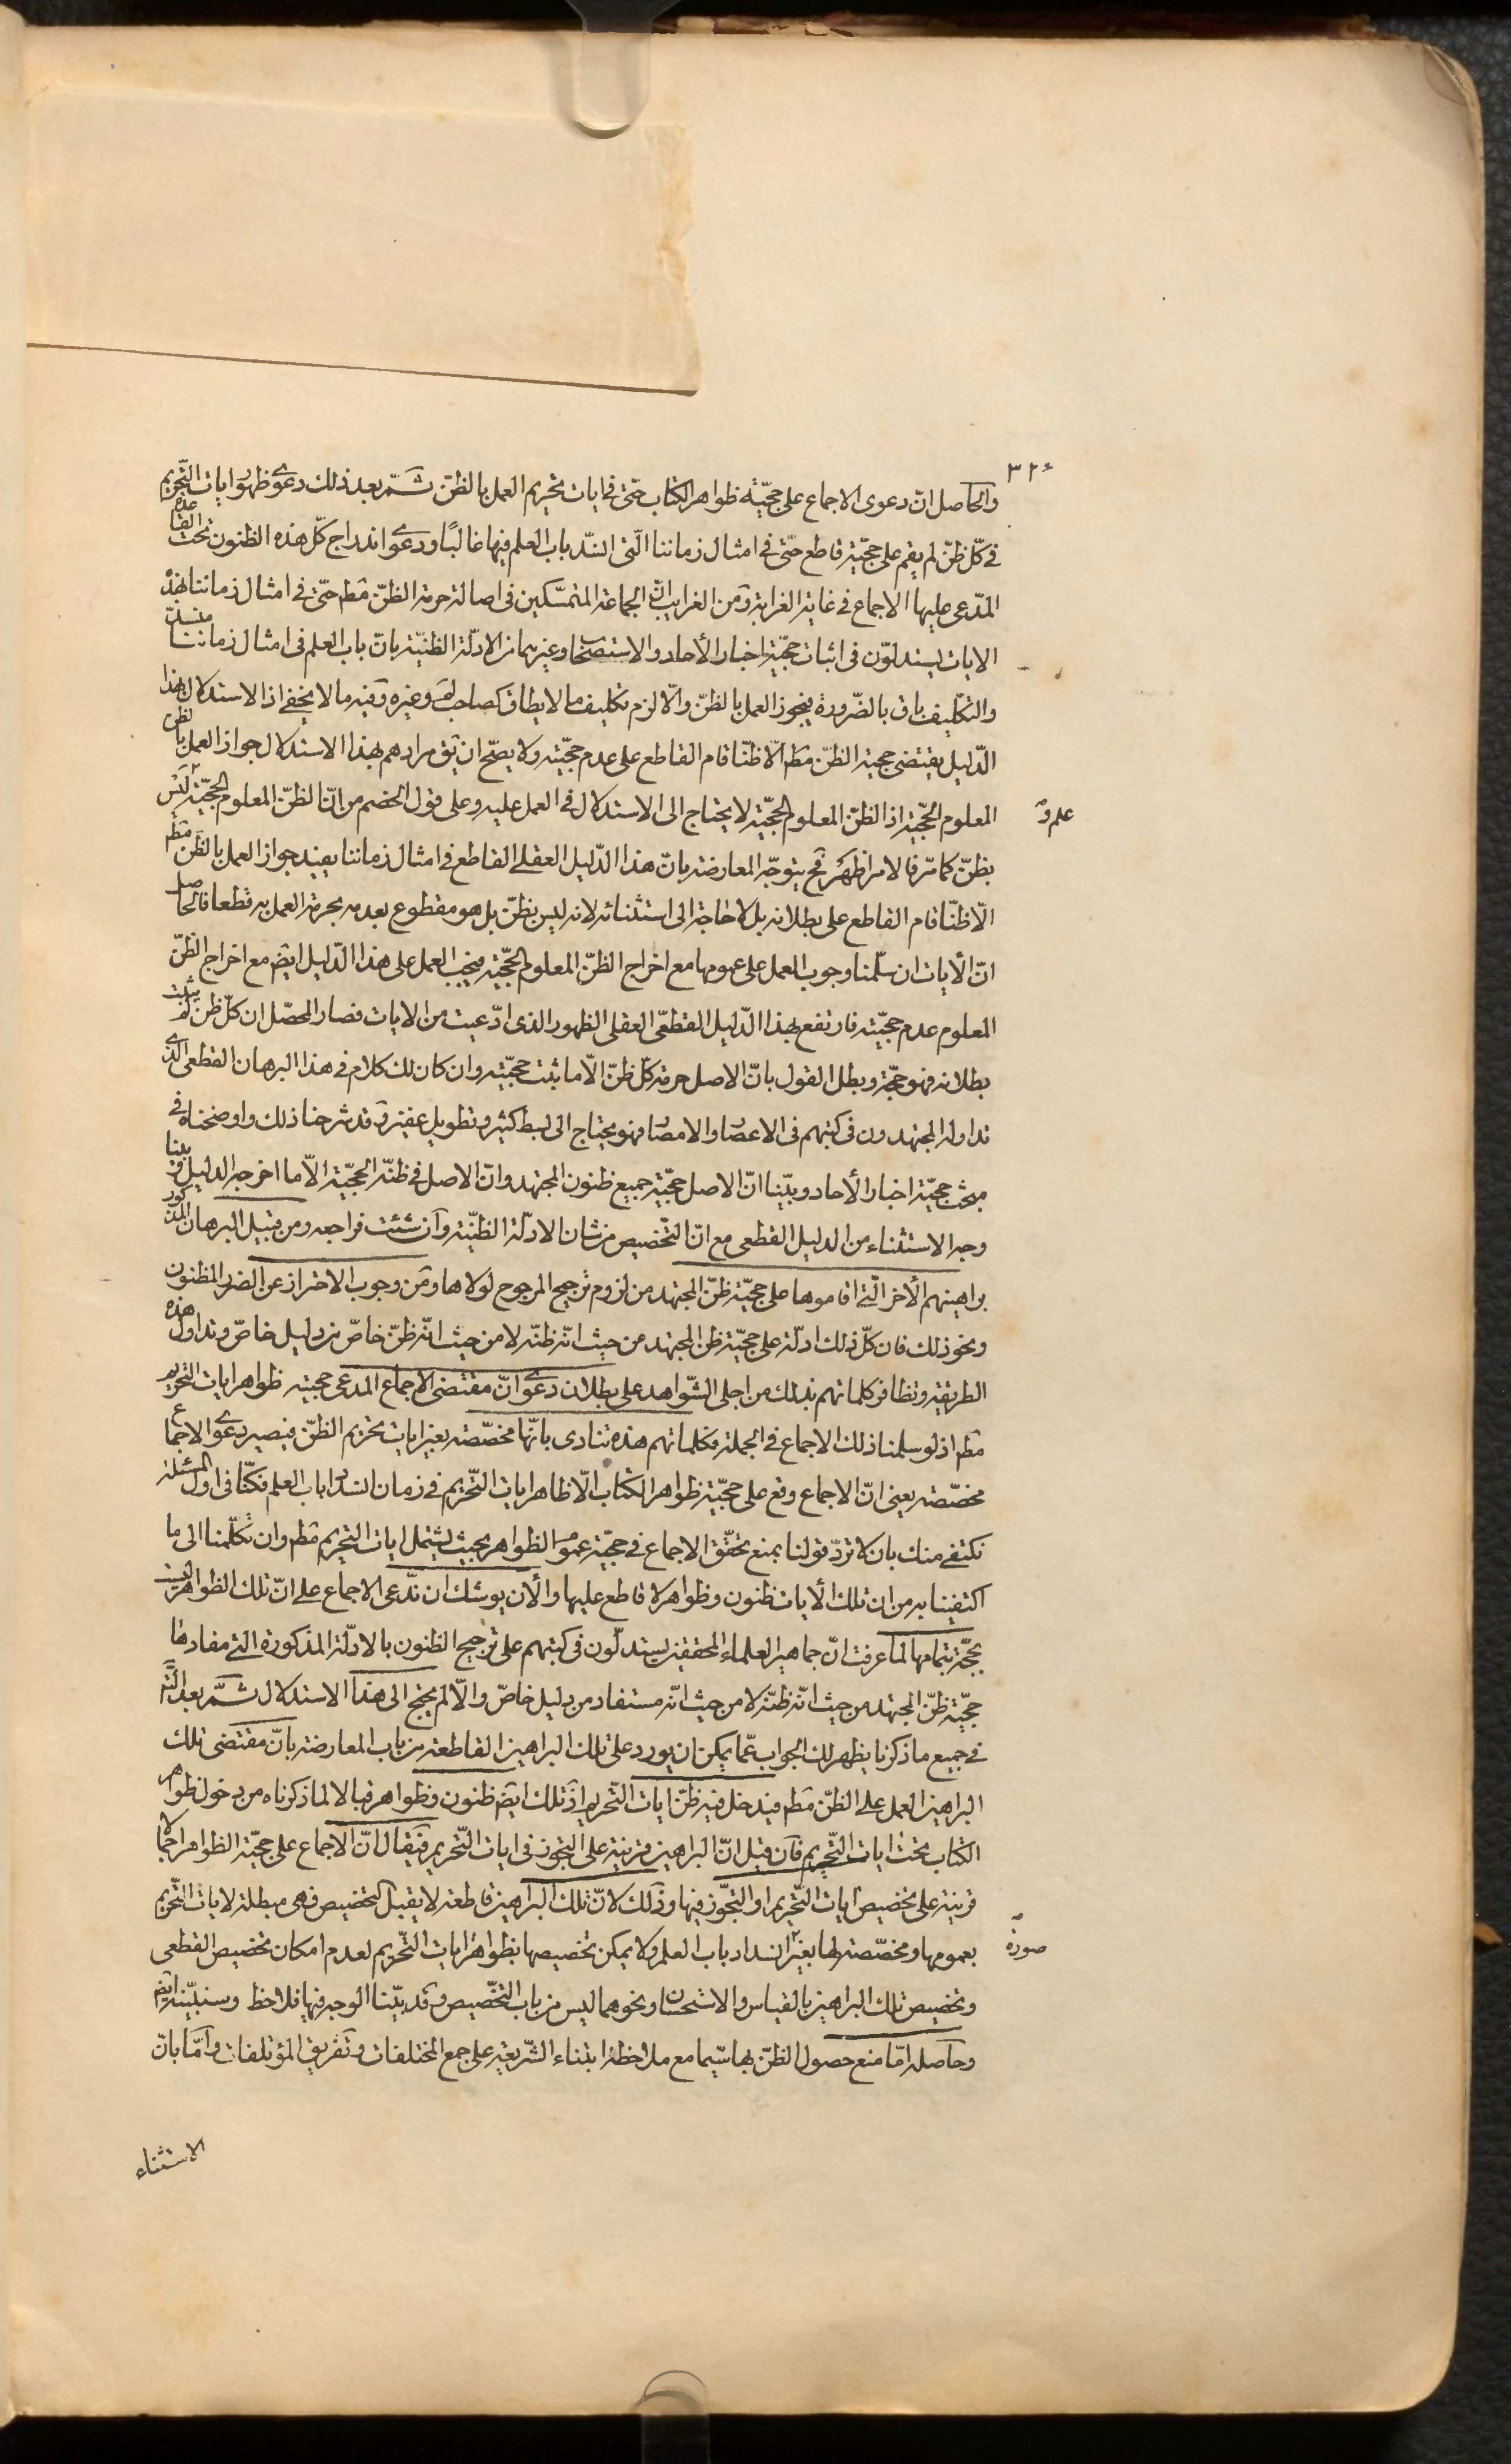 ٣٢٤
والحاصل ان دعوى الاجماع على حجيّة ظواهر الكتاب حتّى فى ايات تحريم العمل بالظنّ ثمّ بعد ذلك دعوى ظهور ايات التّحريم
فى كلّ ظنّ لم يقم على حجيّته قاطع حتّى فى امثال زماننا الّتى انسدّ باب العلم فيها غالبًا ودعوى اندراج كلّ هذه الظنون تحت القاعدة
المدّعى عليها الاجماع فى غاية الغرابة ومن الغرايب انّ الجماعة المتمسّكين فى اصالة حرمة الظنّ مطم حتّى فى امثال زماننا بهذه
الايات يستدلّون فى اثبات حجيّة اخبار الأحاد والاستصحاب وغيرهما من الادلّة الظنيّة بانّ باب العلم فى امثال زماننا منسدّ
والتكليف باق بالضّرورة فيجوز العمل بالظنّ والّا لزم تكليف ما لا يطاق كصاحب لم وغيره وفيه ما لا يخفى اذ الاستدلال بهذا
الدّليل يقتضى حجية الظنّ مطم الّا ظنّا قام القاطع على عدم حجّيته ولا يصحّ ان يق مرادهم بهذا الاستدلال جواز العمل بالظن
المعلوم الحجّية اذ الظنّ المعلوم الحجّية لا يحتاج الى الاستدلال فى العمل عليه وعلى قول الخصم من انّ الظنّ المعلوم الحجيّة ليس
علم و
بظنّ كما مرّ فالامر اظهر فح يتوجّه المعارضة بانّ هذا الدّليل العقلى القاطع فى امثال زماننا يفيد جواز العمل بالظن مطم
الّا ظنّا قام القاطع على بطلانه بل لا حاجة الى استثنائه لانه ليس بظنّ بل هو مقطوع بعدمه بحرمة العمل به قطعا فالحاصل
انّ الأيات ان سلّمنا وجوب العمل على عمومها مع اخراج الظنّ المعلوم الحجّية فيجب العمل على هذا الدّليل ايضم مع اخراج الظنّ
المعلوم عدم حجيّته فارتفع بهذا الدّليل القطعّى العقلى الظهور الذى ادّعيت من الايات فصار المحصّل ان كلّ ظن لم يثبت
بطلانه فهو حجّة وبطل القول بانّ الاصل حرمة كلّ ظنّ الّا ما ثبت حجيّته وان كان لك كلام فى هذا البرهان القطعى الذى
تداوله المجتهدون فى كتبهم فى الاعصار والامصار فهو يحتاج الى بسط كثير وتطويل غفير وقد شرحنا ذلك واوضحناه فى
مبحث حجيّة اخبار الأحاد وبيّنا انّ الاصل حجيّة جميع ظنون المجتهد وانّ الاصل فى ظنّه الحجيّة الّا ما اخرجه الدليل وبينا
وجه الاستثناء من الدليل القطعى مع انّ التّخصيص من شان الادلّة الظنّية وان شئت فراجعه ومن قبيل البرهان المذكور
براهينهم الأخر الّتى اقاموها على حجيّة ظنّ المجتهد من لزوم ترجيح المرجوح لولاها ومن وجوب الاحتراز عن الضرر المظنون
ونحو ذلك فان كلّ ذلك ادلّة على حجيّة ظن المجتهد من حيث انّه ظنّه لا من حيث انّه ظنّ خاصّ من دليل خاصّ وتداول هذه
الطريقة وتظافر كلماتهم بذلك من اجلى الشّواهد على بطلان دعوى انّ مقتضى الاجماع المدعى حجية ظواهر ايات التحريم
مطم اذ لو سلمنا ذلك الاجماع فى الجملة فكلماتهم هذه تنادى بانّها مخصّصة بغير ايات تحريم الظنّ فيصير دعوى الاجماع
مخصّصة يعنى انّ الاجماع وقع على حجيّة ظواهر الكتاب الّا ظاهر ايات التّحريم فى زمان انسداد باب العلم فكنّا فى اول المسئلة
نكتفى منك بان لا تردّ قولنا بمنع تحقّق الاجماع فى حجيّة عموم الظواهر بحيث يشتمل ايات التحريم مطم وان تكلّمنا الى ما
اكتفينا به من ان تلك الأيات ظنون وظواهر لا قاطع عليها والأن يوشك ان ندّعى الاجماع على انّ تلك الظواهر ليست
بحجّة بتمامها لما عرفت انّ جماهير العلماء المحققين يستدلّون فى كتبهم على ترجيح الظنون بالادلّة المذكورة التى مفادها
حجّية ظنّ المجتهد من حيث انّه ظنّه لا من حيث انّه مستفاد من دليل خاصّ والّا لم يحتج الى هذا الاستدلال ثمّ بعد
فى جميع ما ذكرنا يظهر لك الجواب عمّا يمكن ان يورد على تلك البراهين القاطعة من باب المعارضة بانّ مقتضى تلك
البراهين العمل على الظنّ مطم فيدخل فيه ظنّ ايات التّحريم اذ تلك ايضم ظنون وظواهر قبالا لما ذكرناه من دخول ظواهر
الكتاب تحت ايات التّحريم فان قيل انّ البراهين قرينة على التجوز فى ايات التّحريم فيقال انّ الاجماع على حجيّة الظواهر اجمالا
قرينة على تخصيص ايات التّحريم او التجوّز فيها وذلك لانّ تلك البراهين قاطعة لا يقبل التخصيص فهى مبطلة لايات التّحريم
بعمومها ومخصّصة لها بغير انسداد باب العلم ولا يمكن تخصيصها بظواهر ايات التّحريم لعدم امكان تخصيص القطعى
صورة
وتخصيص تلك البراهين بالقياس والاستحسان ونحوهما ليس من باب التخصيص وقد بيّنا الوجه فيها فلاحظ وسنبيّنه ايضم
وحاصله امّا منع حصول الظنّ بها سّيما مع ملاحظة ابتناء الشّريعة على جمع المختلفات وتفريق المؤتلفات وامّا بانّ
الاستثناء